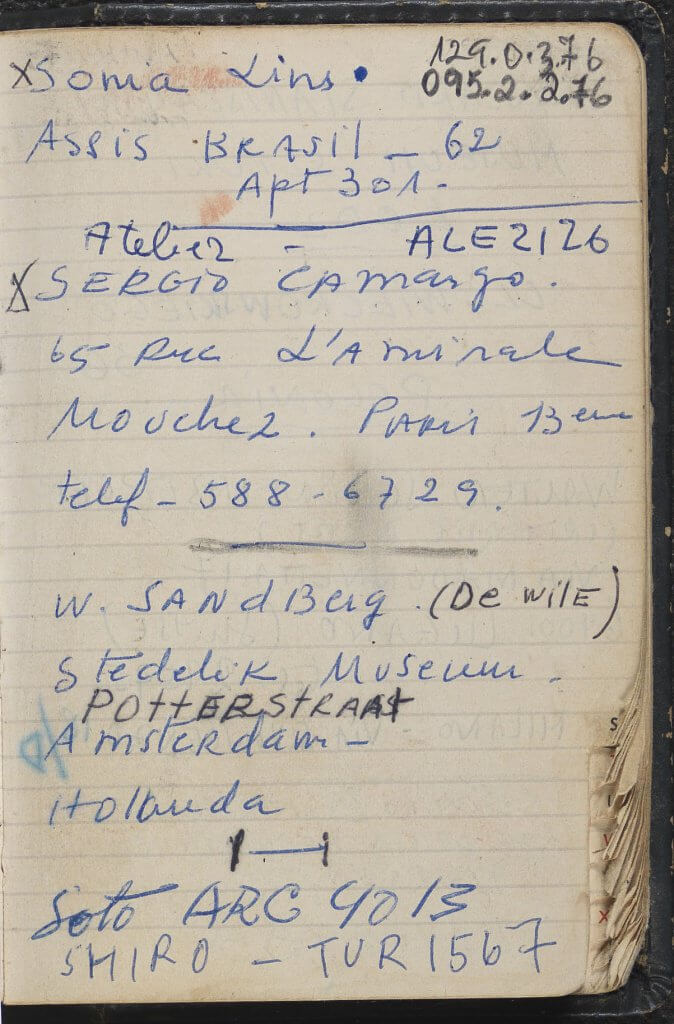 129.0.3.76
XSonia Lins •
095.2.2.76
ASSIS BRASil – 62
Apt 301 –
Atelier – ALE2126
X SERGIO CAmargo.
65 Rue L'Amirale
Mouchez. PARis 13eme
telef – 588 - 6729.
W. SANdBerg. (De WilE)
Stedelik Museum –
POttERStRAAt
Amsterdam –
Holanda
Soto ARC 4013
SHIRO – TUR1567
S
Y
X